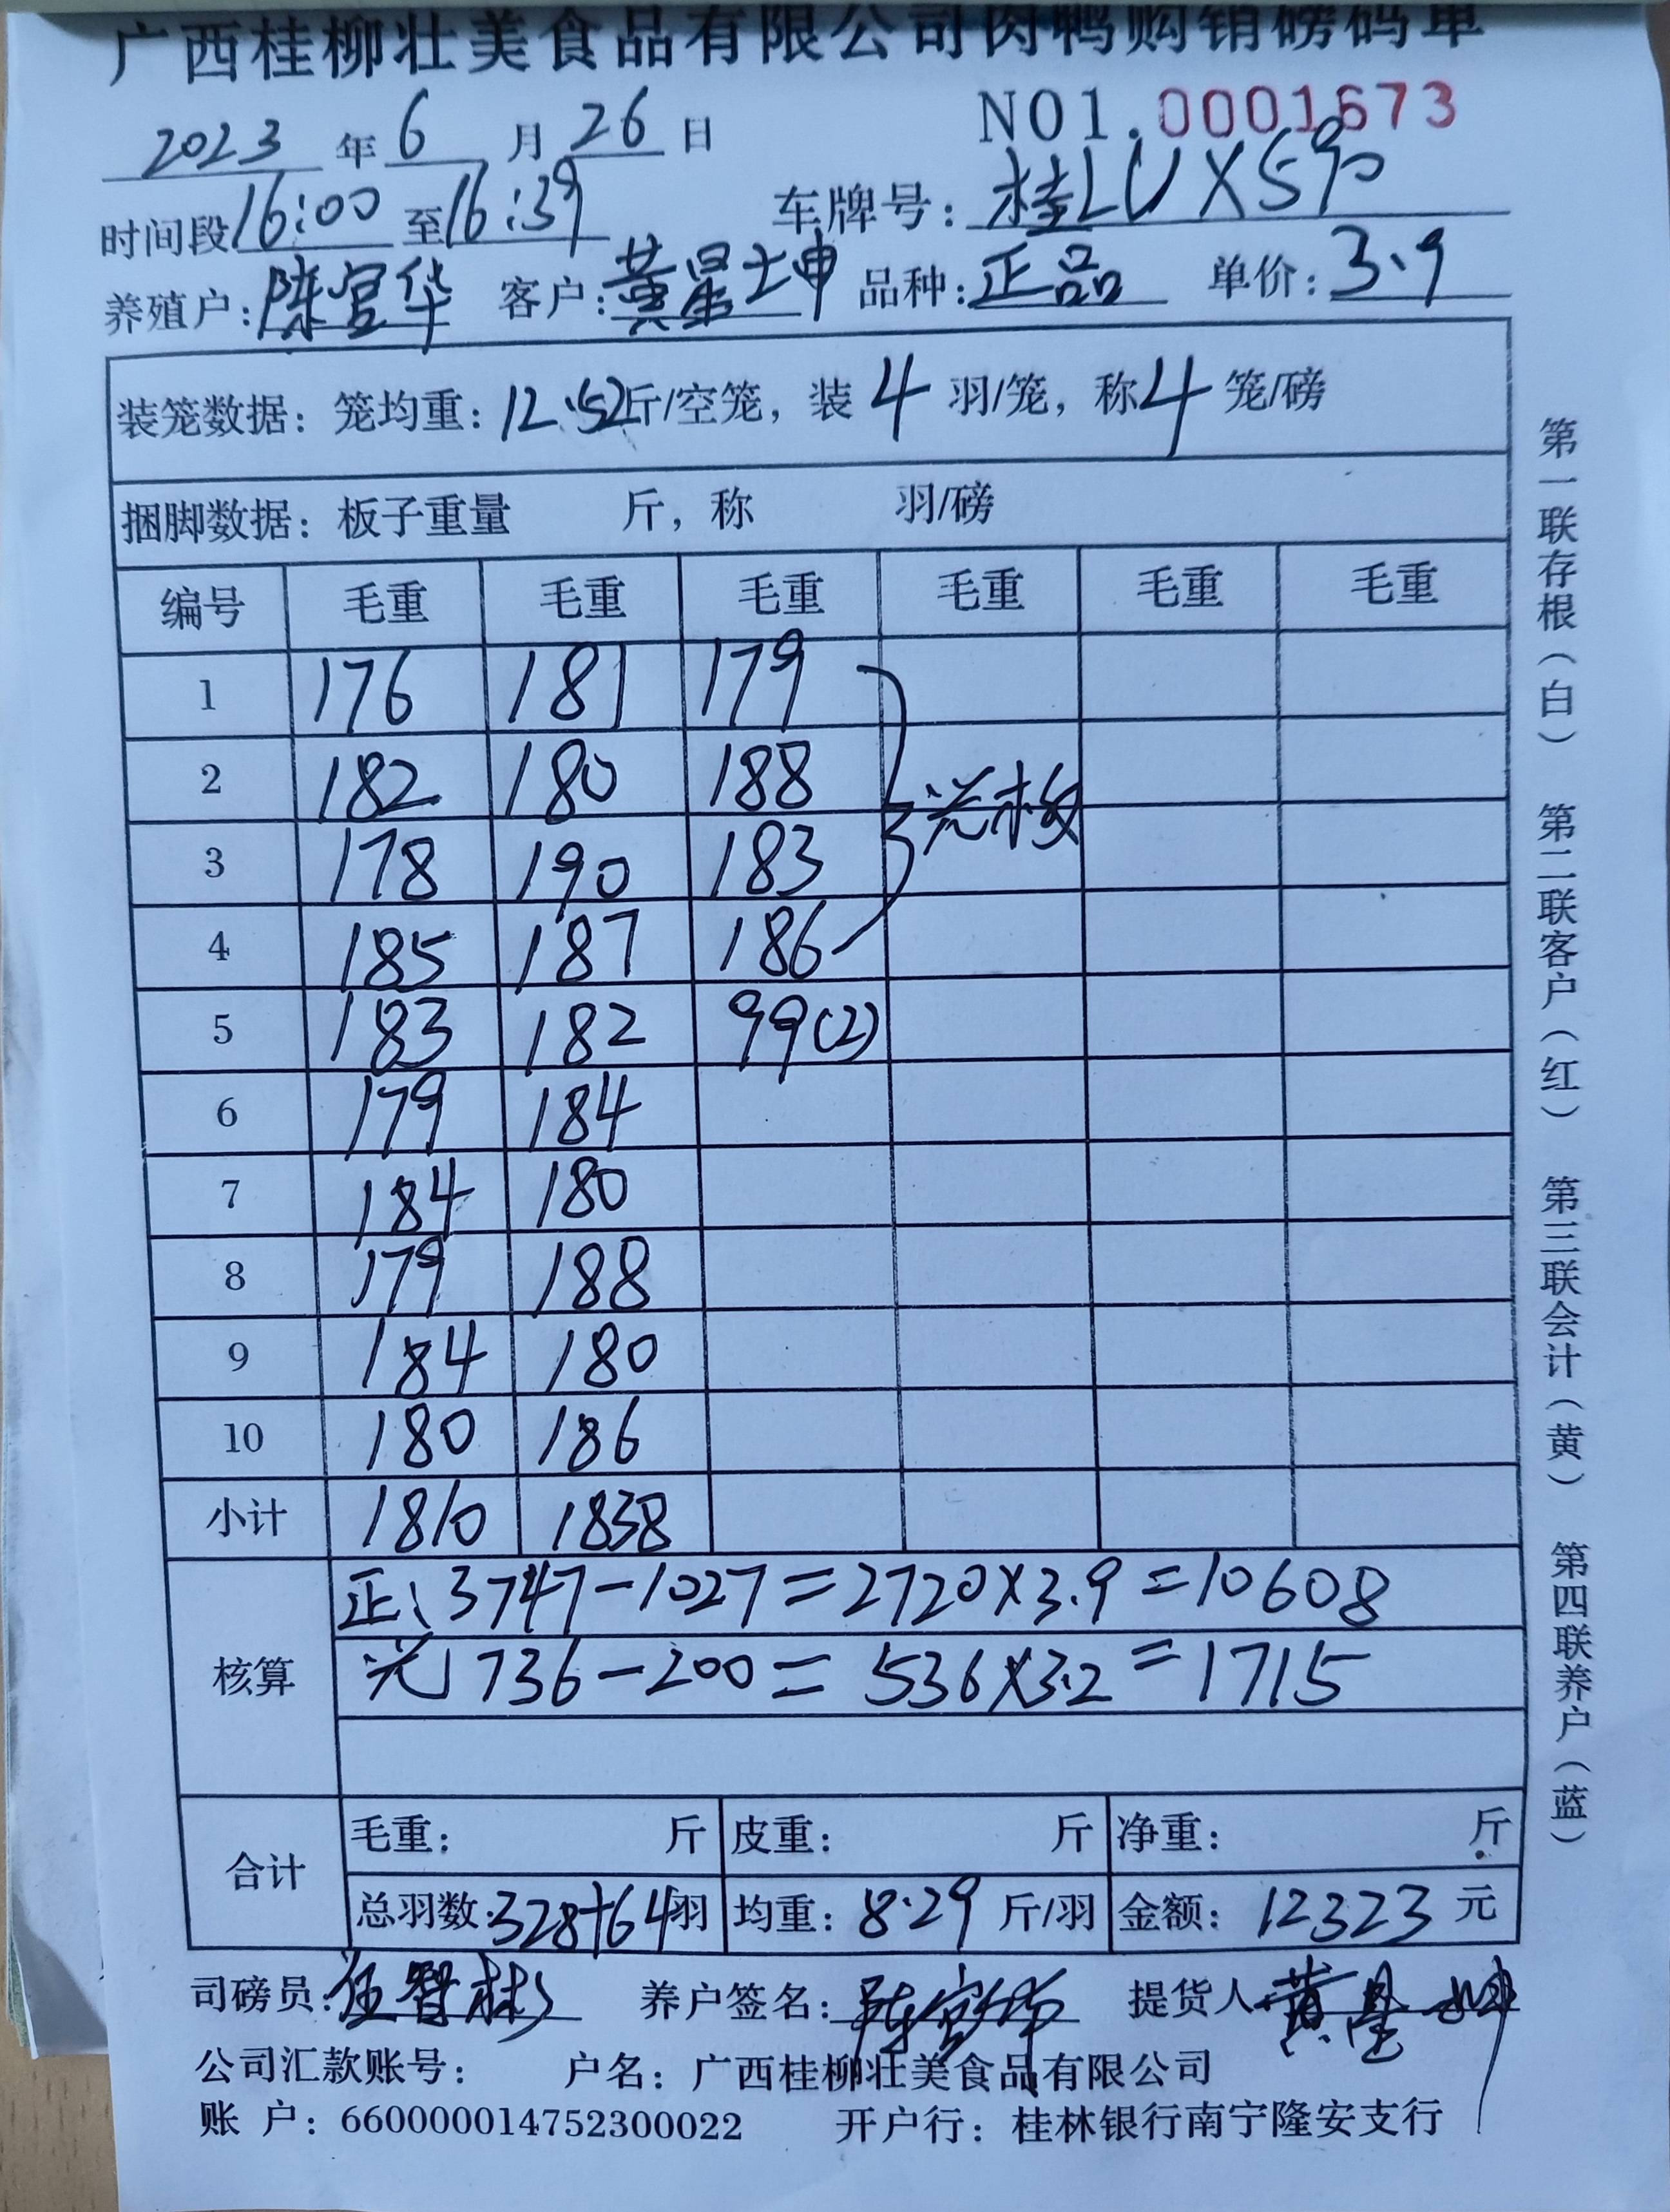 广西桂柳壮美食品有限公司肉鸭购销磅码单
2023年6月26日 NO1.0001673
时间段16:00至16:39 车牌号:桂LUX590
养殖户:陈宣华 客户:黄星坤 品种:正品 单价:3.9
装笼数据:笼均重:12.52斤/空笼,装4羽/笼,称4笼/磅
捆脚数据:板子重量 斤,称 羽/磅
编号 毛重 毛重 毛重 毛重 毛重 毛重
1 176 181 179
2 182 180 188
光板
3 178 190 183
4 185 187 186
5 183 182 99(2)
6 179 184
7 184 180
8 179 188
9 184 180
10 180 186
小计 1810 1838
正、3747-1027=2720×3.9=10608
核算
光 736-200=536×3.2=1715
合计
毛重: 斤 皮重: 斤 净重: 斤
总羽数:328+64羽 均重:8.29斤/羽 金额:12323元
司磅员:伍智彬 养户签名:陈宣华 提货人:黄星坤
公司汇款账号: 户名:广西桂柳壮美食品有限公司
账 户:660000014752300022 开户行:桂林银行南宁隆安支行
第一联存根(白) 第二联客户(红) 第三联会计(黄) 第四联养户(蓝)